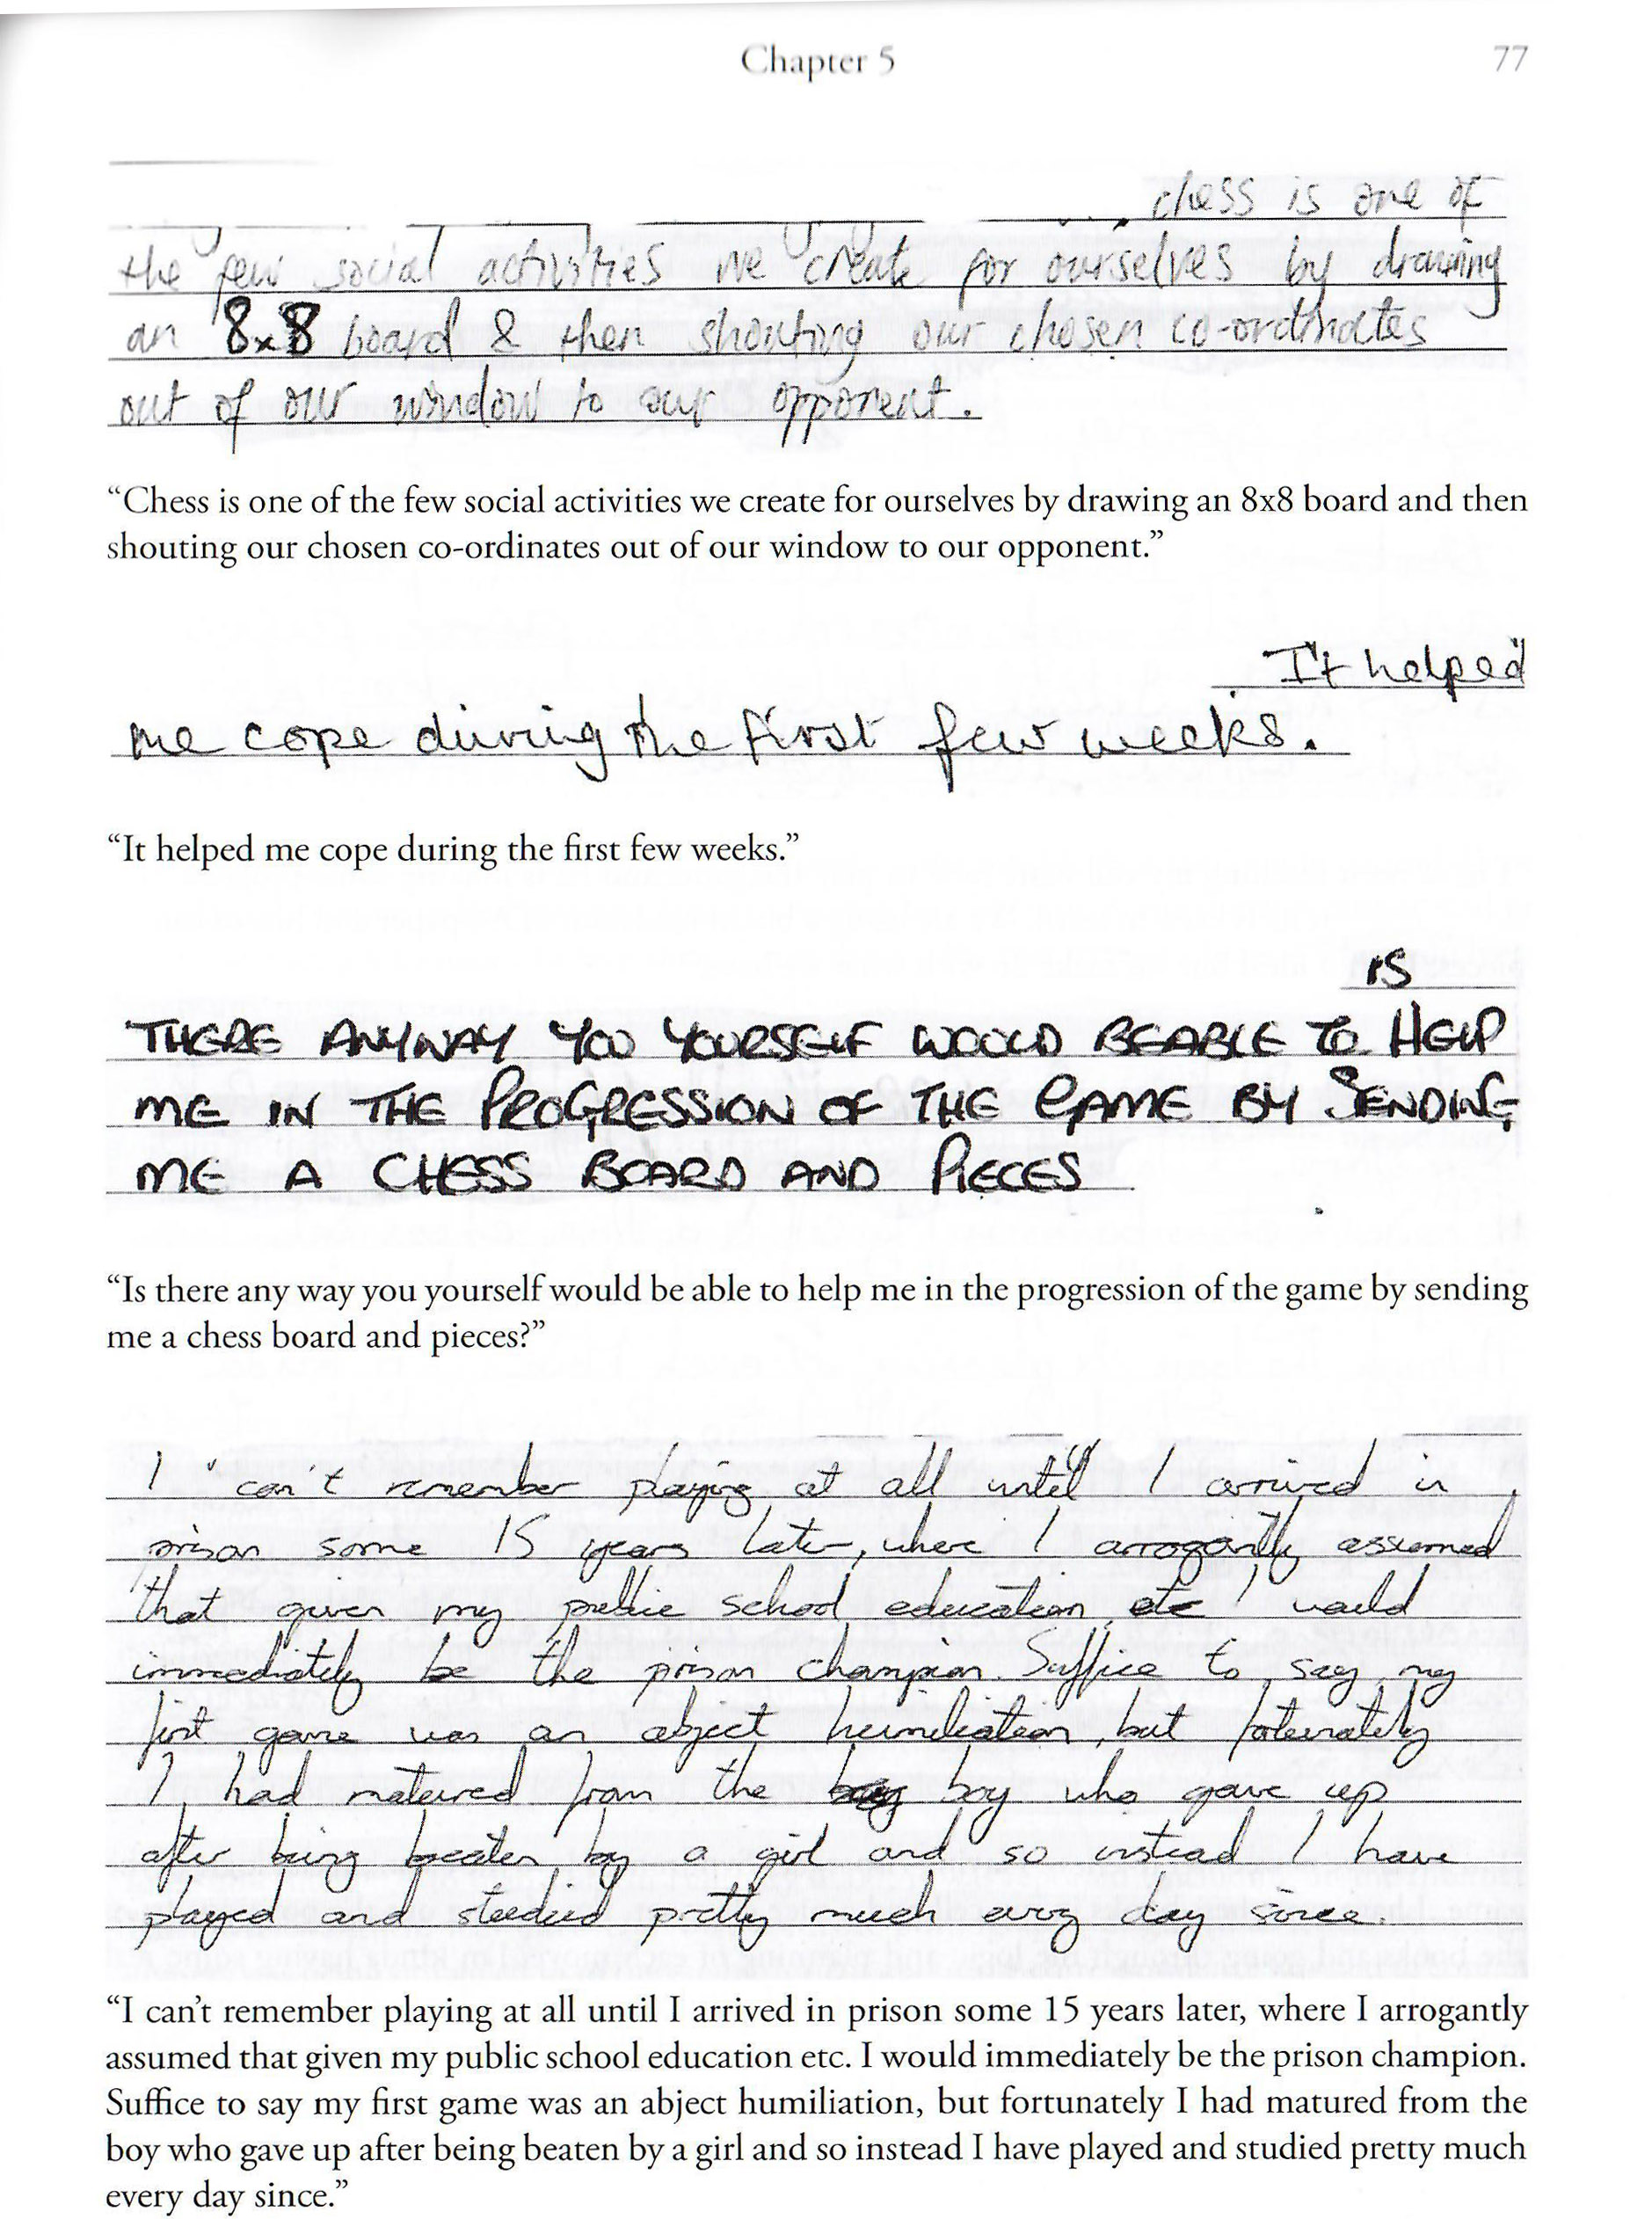 Chapter 5 77
chess is one of
the few social activities we create for ourselves by drawing
an 8x8 board & then shouting our chosen co-ordinates
out of our window to our opponent.
“Chess is one of the few social activities we create for ourselves by drawing an 8x8 board and then
shouting our chosen co-ordinates out of our window to our opponent.”
It helped
me cope during the first few weeks.
“It helped me cope during the first few weeks.”
IS
THERE ANYWAY YOU YOURSELF WOULD BEABLE TO HELP
ME IN THE PROGRESSION OF THE GAME BY SENDING
ME A CHESS BOARD AND PIECES
“Is there any way you yourself would be able to help me in the progression of the game by sending
me a chess board and pieces?”
I can't remember playing at all until I arrived in
prison some 15 years later, where I arrogantly assumed
that given my public school education etc I would
immediately be the prison champion. Suffice to say my
first game was an abject humiliation, but fortunately
I had matured from the boy who gave up
after being beaten by a girl and so instead I have
played and studied pretty much every day since.
“I can’t remember playing at all until I arrived in prison some 15 years later, where I arrogantly
assumed that given my public school education etc. I would immediately be the prison champion.
Suffice to say my first game was an abject humiliation, but fortunately I had matured from the
boy who gave up after being beaten by a girl and so instead I have played and studied pretty much
every day since.”